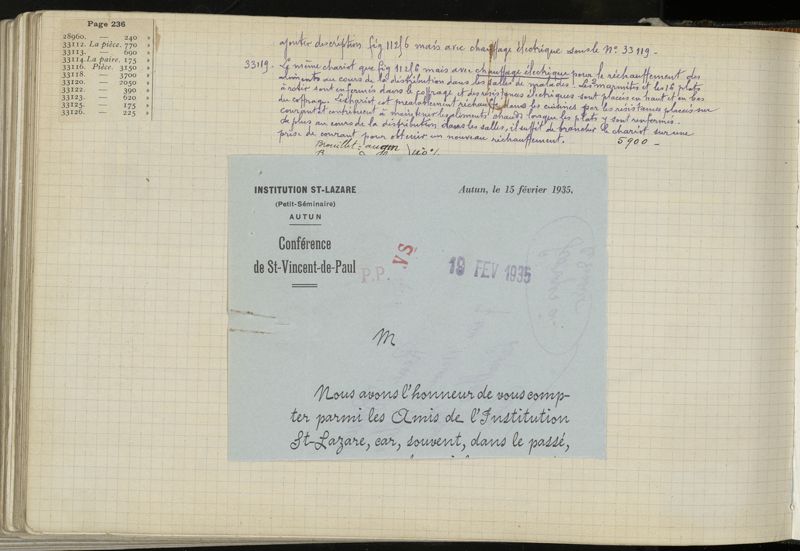 Page 236
28960. — 240 »
33112. La pièce. 770 »
33113. — 690 »
33114. La paire. 175 »
33116. Pièce. 3150 »
33118. — 3700 »
33120. — 2050 »
33122. — 390 »
33123. — 620 »
33125. — 175 »
33126. — 225 »
ajouter description fig 112f6 mais avec chauffage électrique sous le N° 33119 -
33119. Le même chariot que fig 112f6 mais avec chauffage électrique pour le réchauffement des
aliments au cours de la distribution dans les salles de malades. Les marmites et les 16 plats
à rôtir sont enfermés dans le coffrage, et des résistances électriques sont placées en haut et en bas
du coffrage. Le chariot est préalablement réchauffé dans les cuisines par les résistances placées sur
courant et contribuent à maintenir les aliments chauds lorsque les plats y sont renfermés.
De plus au cours de la distribution dans les salles, il suffit de brancher le chariot sur une
prise de courant pour obtenir un nouveau réchauffement. 5900 -
INSTITUTION ST-LAZARE
(Petit-Séminaire)
AUTUN
Conférence
de St-Vincent-de-Paul
Autun, le 15 février 1935.
P.P. VS
19 FEV 1935
M
Nous avons l'honneur de vous comp-
ter parmi les Amis de l'Institution
St-Lazare, car, souvent, dans le passé,